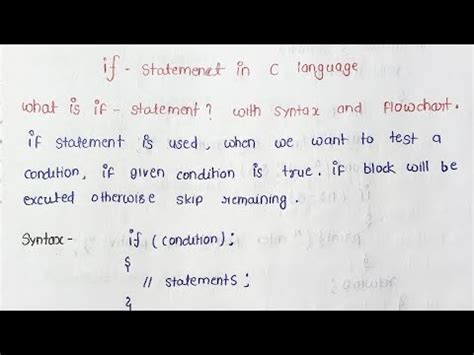 if - statemenet in C language
what is if - statement? with syntax and flowchart.
if statement is used, when we want to test a
condition, if given condition is true. if block will be
excuted otherwise skip remaining.
Syntax - if (condition);
{
// statements;
{